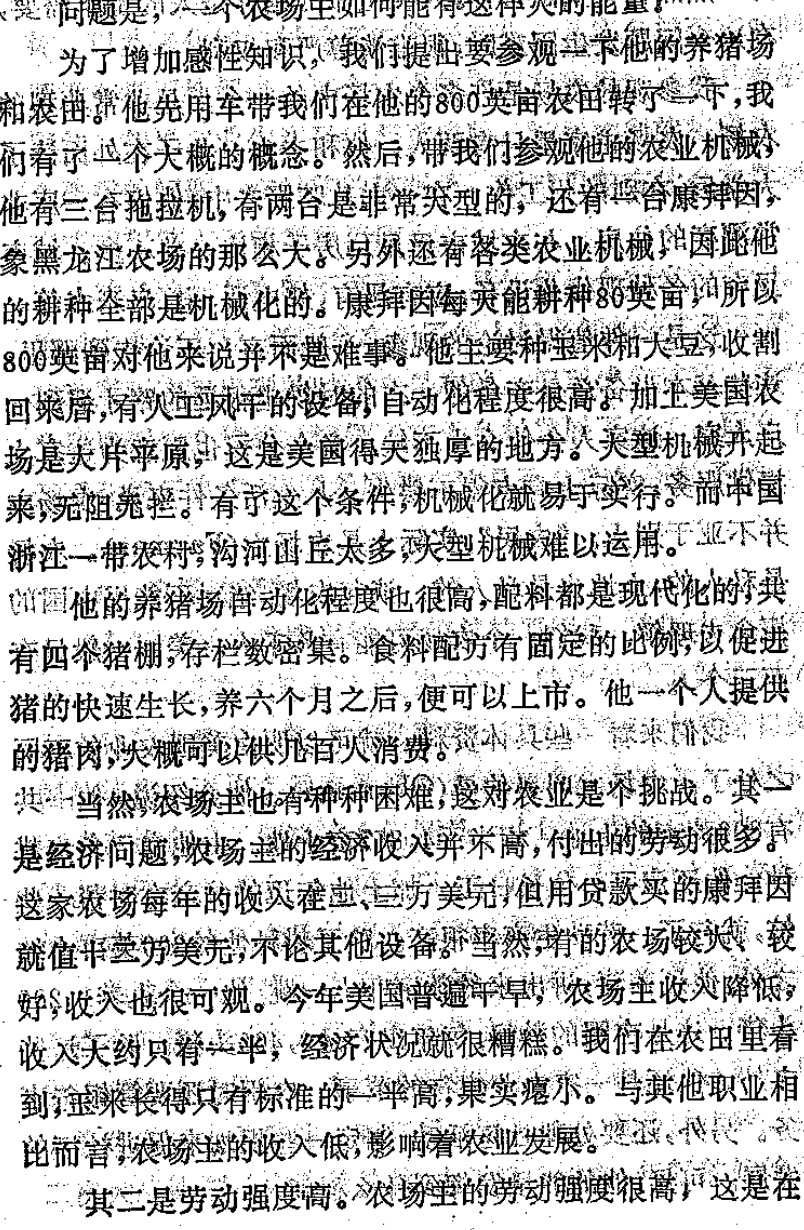 问题是，一个农场主如何能有这种大的能量？
为了增加感性知识，我们提出要参观一下他的养猪场
和农田。他先用车带我们在他的800英亩农田转了一下，我
们有了一个大概的概念。然后，带我们参观他的农业机械，
他有三台拖拉机，有两台是非常大型的，还有一台康拜因，
象黑龙江农场的那么大。另外还有各类农业机械，因此他
的耕种全部是机械化的。康拜因每天能耕种80英亩，所以
800英亩对他来说并不是难事。他主要种玉米和大豆，收割
回来后，有人工风干的设备，自动化程度很高。加上美国农
场是大片平原，这是美国得天独厚的地方。大型机械开起
来，无阻无拦。有了这个条件，机械化就易于实行。而中国
浙江一带农村，沟河山丘太多，大型机械难以运用。
他的养猪场自动化程度也很高，配料都是现代化的，共
有四个猪棚，存栏数密集。食料配方有固定的比例，以促进
猪的快速生长，养六个月之后，便可以上市。他一个人提供
的猪肉，大概可以供几百人消费。
当然，农场主也有种种困难，这对农业是个挑战。其一
是经济问题，农场主的经济收入并不高，付出的劳动很多。
这家农场每年的收入在二、三万美元，但用贷款买的康拜因
就值十三万美元，不论其他设备。当然，有的农场较大、较
好，收入也很可观。今年美国普遍干旱，农场主收入降低，
收入大约只有一半，经济状况就很糟糕。我们在农田里看
到，玉米长得只有标准的一半高，果实瘪小。与其他职业相
比而言，农场主的收入低，影响着农业发展。
其二是劳动强度高。农场主的劳动强度很高，这是在